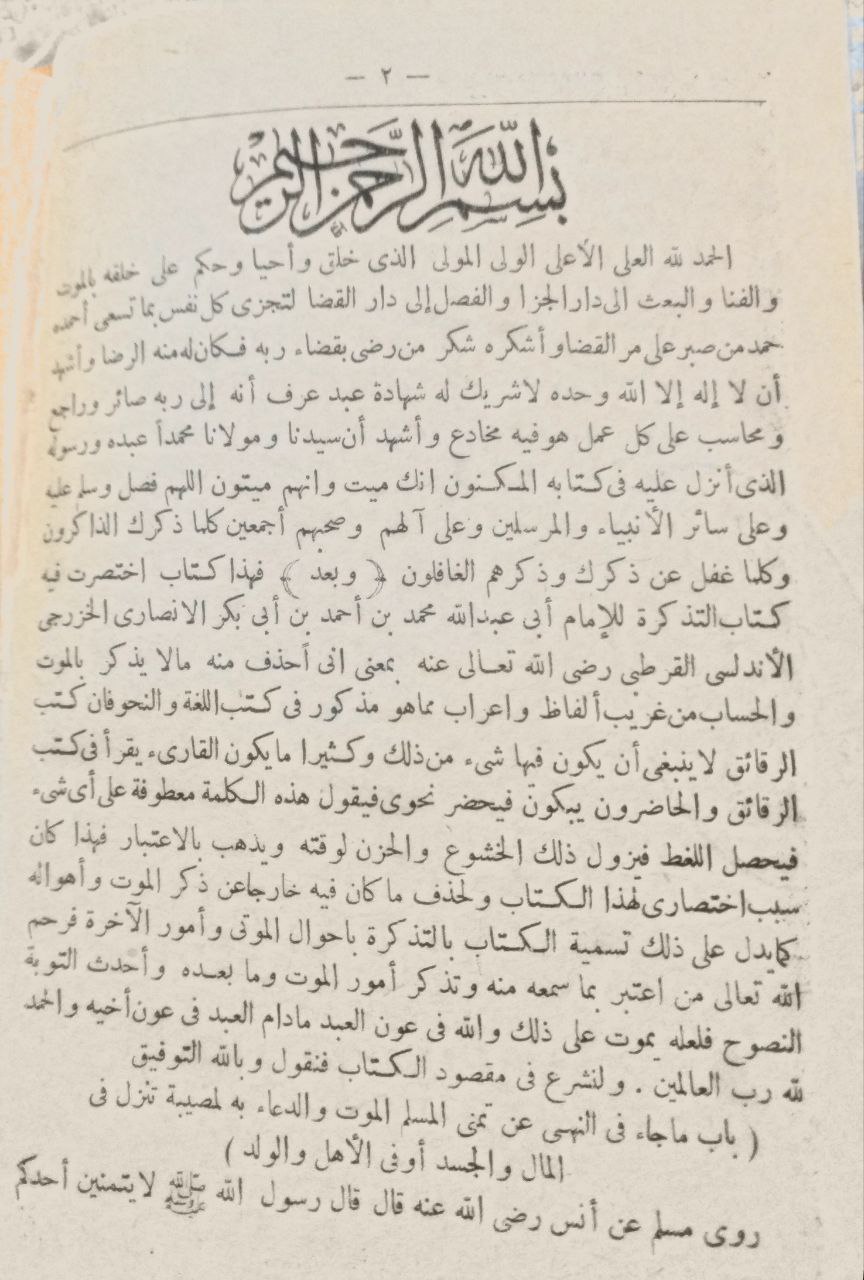 — ٢ —
بسم الله الرحمن الرحيم
الحمد لله العلى الأعلى الولى المولى الذى خلق وأحيا وحكم على خلقه بالموت
والفنا والبعث الى دار الجزا والفصل إلى دار القضا لتجزى كل نفس بما تسعى أحمده
حمد من صبر على مر القضا وأشكره شكر من رضى بقضاء ربه فكان له منه الرضا وأشهد
أن لا إله إلا الله وحده لاشريك له شهادة عبد عرف أنه إلى ربه صائر وراجع
ومحاسب على كل عمل هو فيه مخادع وأشهد أن سيدنا ومولانا محمداً عبده ورسوله
الذى أنزل عليه فى كتابه المكنون انك ميت وانهم ميتون اللهم فصل وسلم عليه
وعلى سائر الأنبياء والمرسلين وعلى آلهم وصحبهم أجمعين كلما ذكرك الذاكرون
وكلما غفل عن ذكرك وذكرهم الغافلون ﴿ وبعد ﴾ فهذا كتاب اختصرت فيه
كتاب التذكرة للإمام أبى عبدالله محمد بن أحمد بن أبى بكر الانصارى الخزرجى
الأندلسى القرطبى رضى الله تعالى عنه بمعنى انى أحذف منه مالا يذكر بالموت
والحساب من غريب ألفاظ واعراب مماهو مذكور فى كتب اللغة والنحوفان كتب
الرقائق لاينبغى أن يكون فيها شىء من ذلك وكثيرا مايكون القارىء يقرأ فى كتب
الرقائق والحاضرون يبكون فيحضر نحوى فيقول هذه الكلمة معطوفة على أى شىء
فيحصل اللغط فيزول ذلك الخشوع والحزن لوقته ويذهب بالاعتبار فهذا كان
سبب اختصارى لهذا الكتاب ولحذف ما كان فيه خارجا عن ذكر الموت وأهواله
كما يدل على ذلك تسمية الكتاب بالتذكرة باحوال الموتى وأمور الآخرة فرحم
الله تعالى من اعتبر بما سمعه منه وتذكر أمور الموت وما بعده وأحدث التوبة
النصوح فلعله يموت على ذلك والله فى عون العبد مادام العبد فى عون أخيه والحمد
لله رب العالمين . ولنشرع فى مقصود الكتاب فنقول وبالله التوفيق
( باب ماجاء فى النهى عن تمنى المسلم الموت والدعاء به لمصيبة تنزل فى
المال والجسد أو فى الأهل والولد )
روى مسلم عن أنس رضى الله عنه قال قال رسول الله ﷺ لايتمنين أحدكم